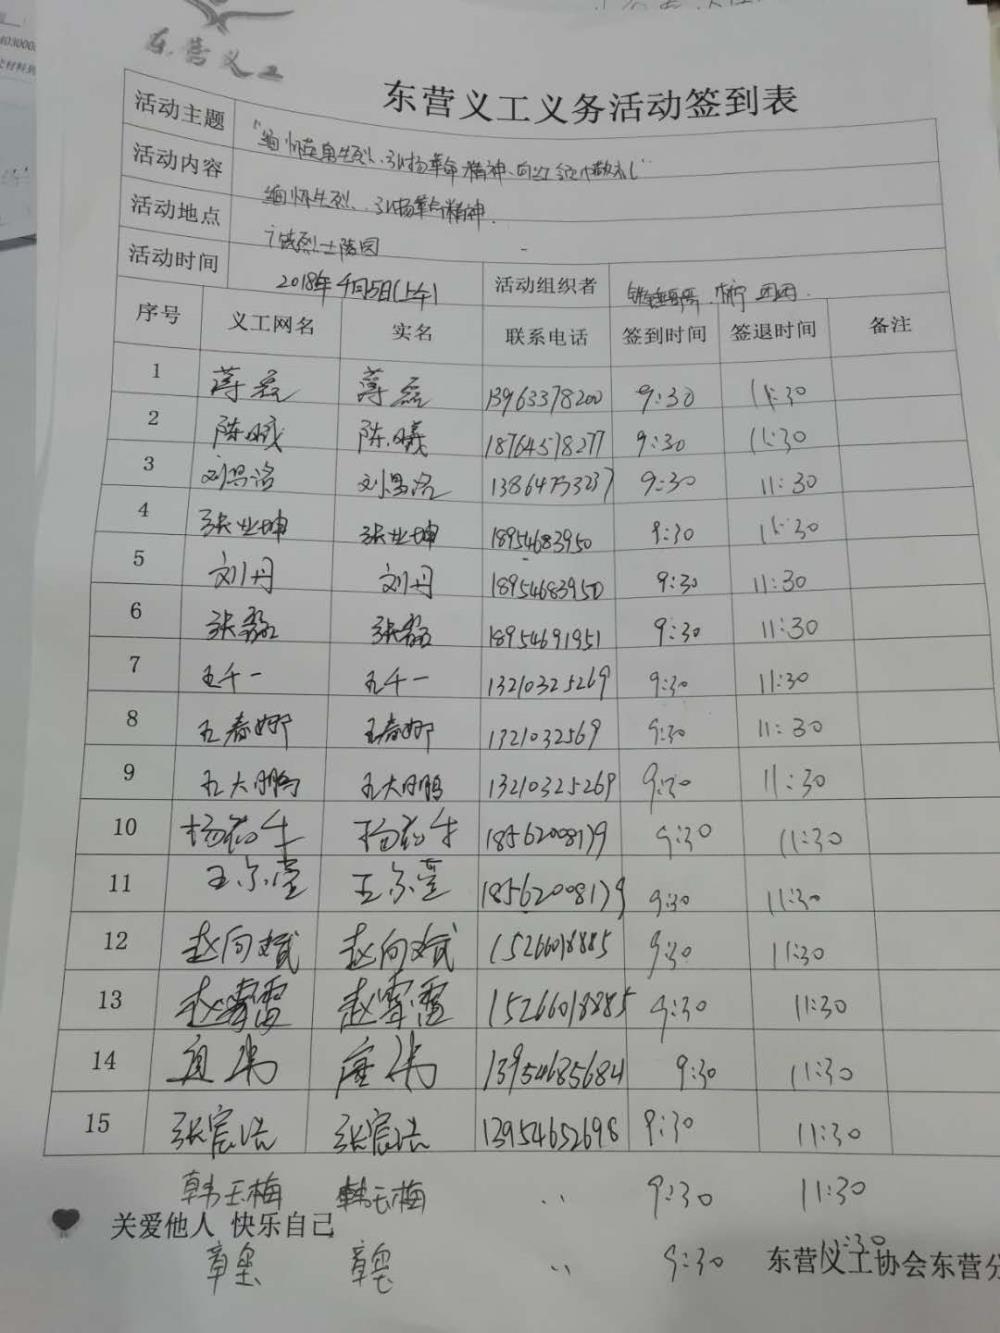 东营义工
东营义工义务活动签到表
活动主题 "缅怀先烈、弘扬革命精神、向红领巾敬礼"
活动内容 缅怀先烈、弘扬革命精神.
活动地点 烈士陵园
活动时间 2018年4月5日(上午) 活动组织者
序号 义工网名 实名 联系电话 签到时间 签退时间 备注
1 蒋磊 蒋磊 13963378200 9:30 11:30
2 陈曦 陈曦 18764578277 9:30 11:30
3 刘昌洛 刘昌洛 13864753237 9:30 11:30
4 张业坤 张业坤 18954683950 9:30 11:30
5 刘丹 刘丹 18954683950 9:30 11:30
6 张磊 张磊 18954691951 9:30 11:30
7 王千一 王千一 13210325269 9:30 11:30
8 王春娜 王春娜 1321032569 9:30 11:30
9 王大鹏 王大鹏 13210325269 9:30 11:30
10 杨 18562008179 9:30 11:30
11 王 王 18562008179 9:30 11:30
12 赵向斌 赵向斌 15266018885 9:30 11:30
13 赵 赵 15266018885 9:30 11:30
14 13954685684 9:30 11:30
15 张宸浩 张宸浩 13954652698 9:30 11:30
韩玉梅 韩玉梅 .. 9:30 11:30
关爱他人 快乐自己
章 章 .. 9:30 11:30
东营义工协会东营分